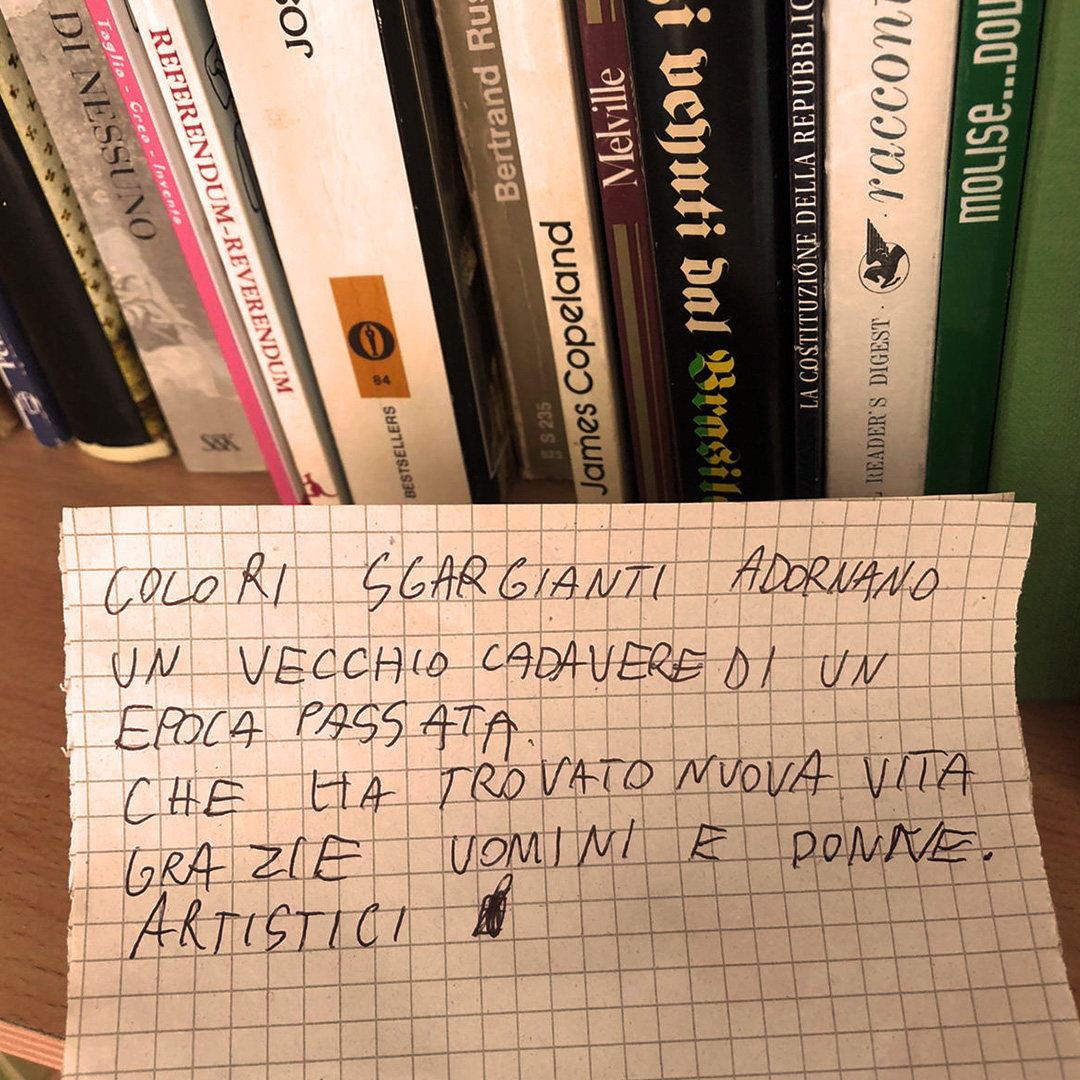 DI NESSUNO
S&K
Taglia - Crea - Inventa
REFERENDUM-REVERENDUM
JOS
84
BESTSELLERS
Bertrand Rus
S 235
James Copeland
Melville
i venuti dal Brasile
LA COSTITUZIONE DELLA REPUBBLIC
racconti
READER'S DIGEST
MOLISE...DOV
COLORI SGARGIANTI ADORNANO
UN VECCHIO CADAVERE DI UN
EPOCA PASSATA.
CHE HA TROVATO NUOVA VITA
GRAZIE UOMINI E DONNE.
ARTISTICI